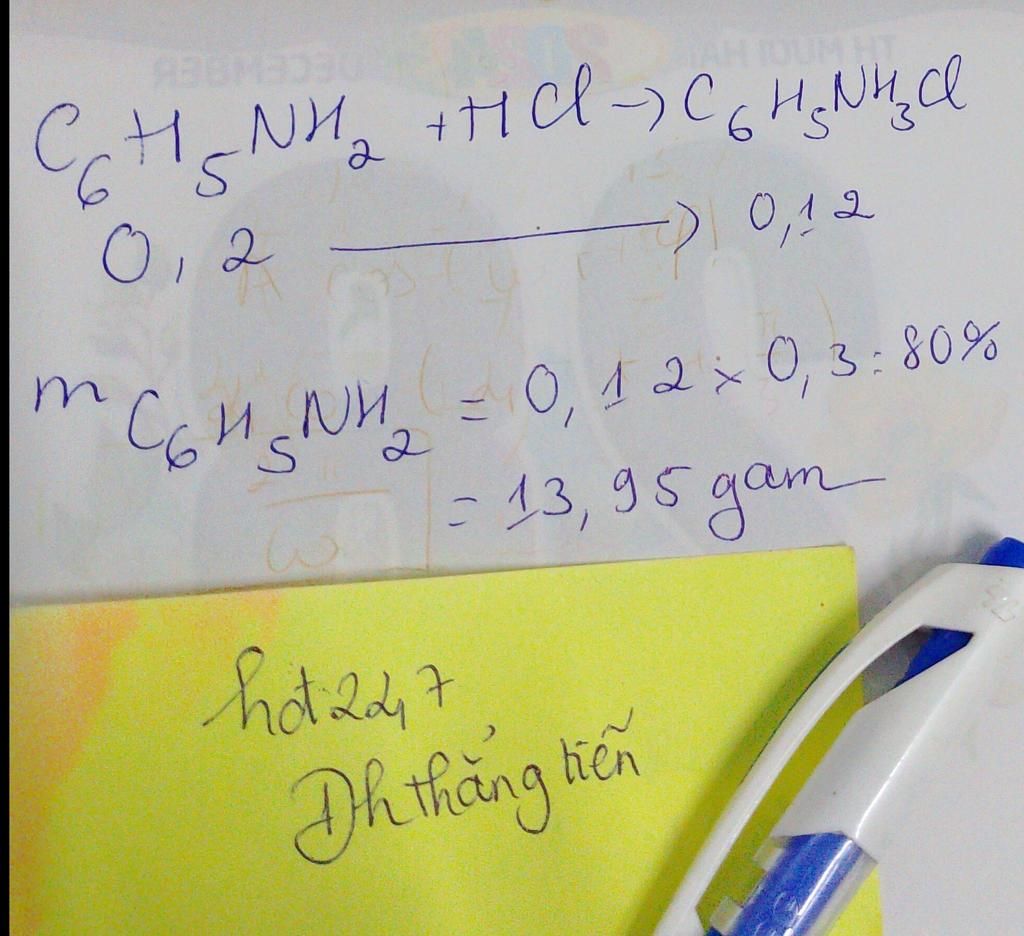 C6H5NH2 + HCl → C6H5NH3Cl
0,2 → 0,12
m C6H5NH2 = 0,12 x 0,3 : 80%
= 13,95 gam
Đh thẳng tiến